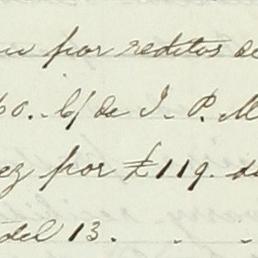 por reditos de
60. C/ de J. P. M
ez por £119. d
del 13. . .